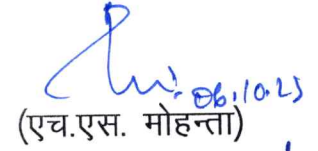 06.10.25
(एच.एस. मोहन्ता)